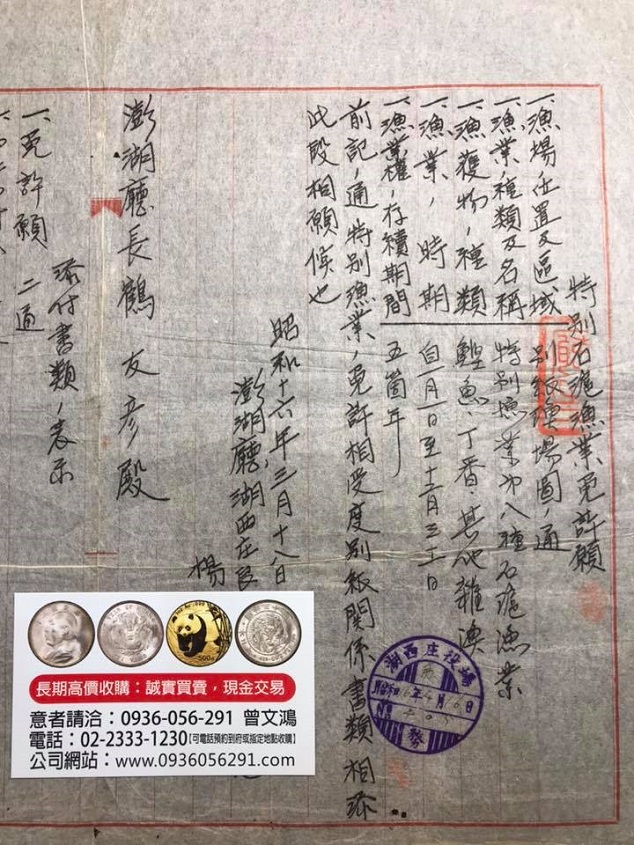 特別石滬漁業免許願
一、漁場位置及區域 別紙漁場圖ノ通
一、漁業ノ種類及名稱 特別漁業第八種石滬漁業
一、漁獲物ノ種類 鰹魚、丁香、其他雜漁
一、漁業ノ時期 自一月一日至十二月三十一日
一、漁業權ノ存續期間 五箇年
前記ノ通特別漁業ノ免許相受度別紙關係書類相添
此段相願候也
昭和十六年三月十八日
澎湖廳湖西庄良
楊
澎湖廳長鶴友彥殿
添付書類ノ表示
一、免許願 二通
湖西庄役場
昭和 年 月 日
務
長期高價收購：誠實買賣，現金交易
意者請洽：0936-056-291 曾文鴻
電話：02-2333-1230【可電話預約到府或指定地點收購】
公司網站：www.0936056291.com